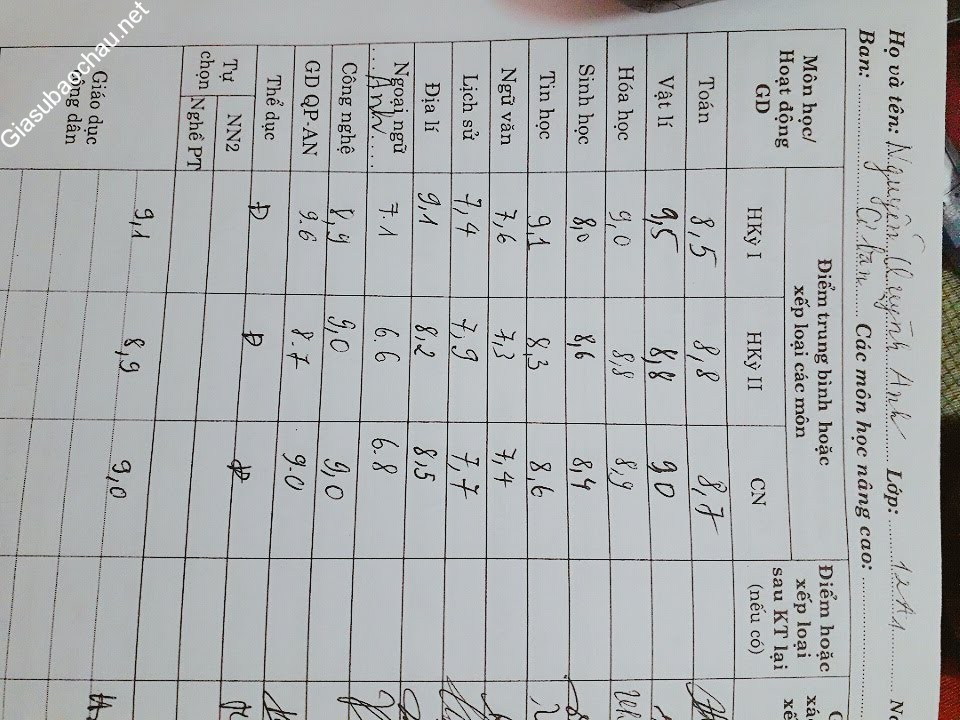 Họ và tên: Nguyễn Quỳnh Anh Lớp: 12A1
Ban: Cơ bản Các môn học nâng cao:
Môn học/ Hoạt động GD
Điểm trung bình hoặc xếp loại các môn
Điểm hoặc xếp loại sau KT lại (nếu có)
HKỳ I HKỳ II CN
Toán 8,5 8,8 8,7
Vật lí 9,5 8,8 9,0
Hóa học 9,0 8,8 8,9
Sinh học 8,0 8,6 8,4
Tin học 9,1 8,3 8,6
Ngữ văn 7,6 7,3 7,4
Lịch sử 7,4 7,9 7,7
Địa lí 9,1 8,2 8,5
Ngoại ngữ Anh 7.1 6.6 6.8
Công nghệ 8,9 9,0 9,0
GD QP-AN 9.6 8.7 9.0
Thể dục Đ Đ Đ
Tự chọn NN2
Nghề PT
Giáo dục công dân 9,1 8,9 9,0
Giasubaochau.net